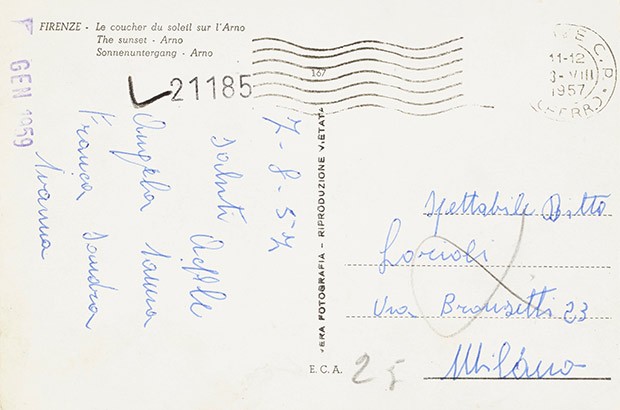 FIRENZE - Le coucher du soleil sur l'Arno
The sunset - Arno
Sonnenuntergang - Arno
GEN 1959
21185
167
11-12
8-VIII
1957
(FERR.)
7-8-57
saluti
Angela
Franca Sandra
Ivanna
VERA FOTOGRAFIA - RIPRODUZIONE VIETATA
Spettabile Ditta
Via Bronzetti 23
Milano
E.C.A.
25